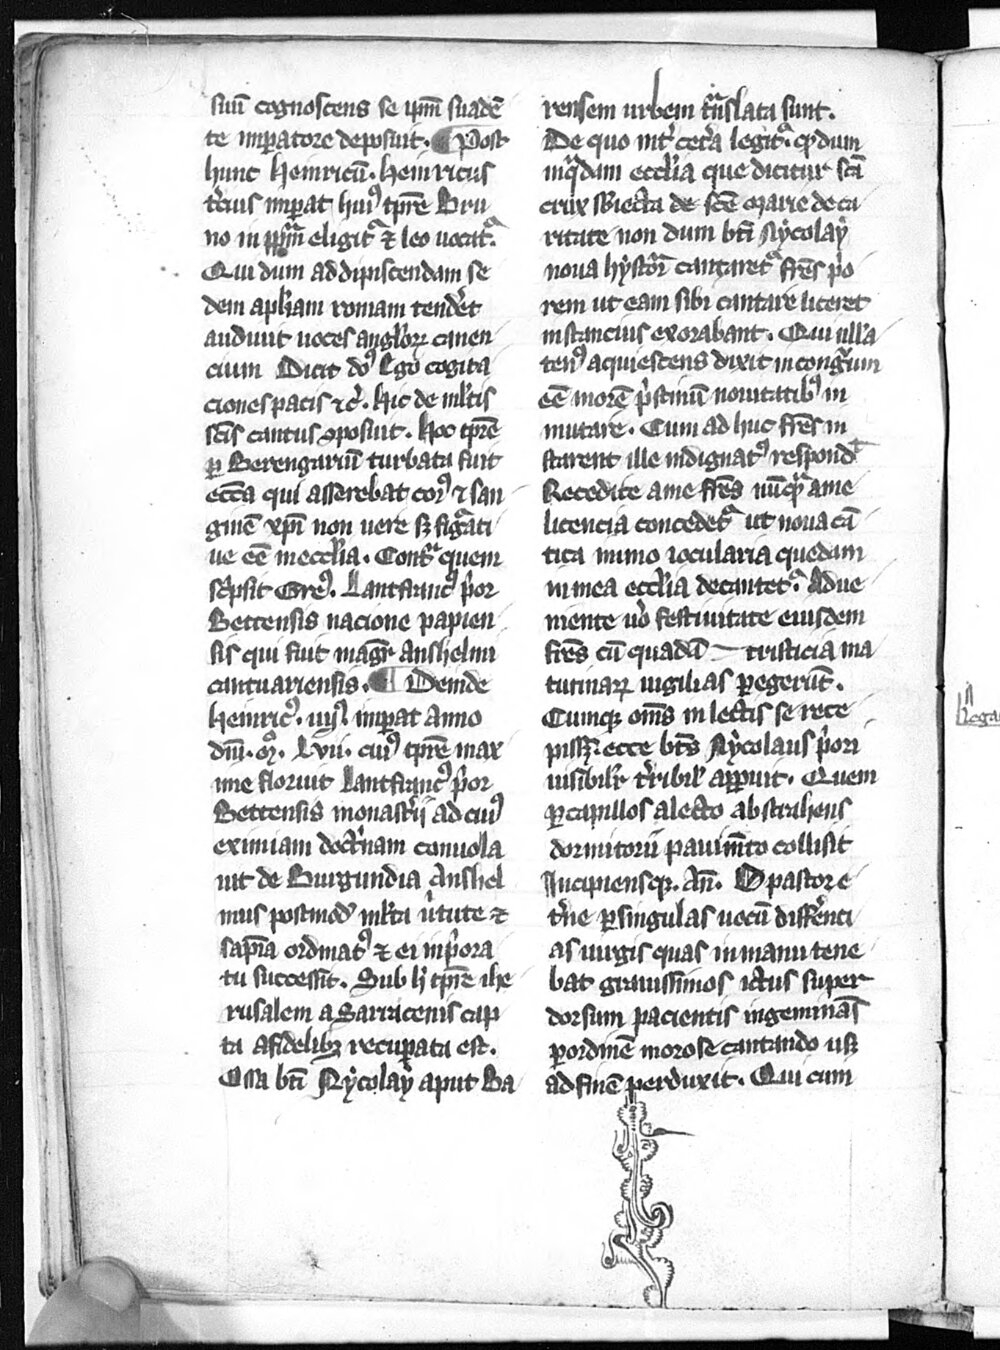 suū cognoscens se ip̄m suadē
te imꝑatore deposuit. ¶ Post
hunc Heinricū. Heinricus
t̓cius imꝑat huiꝰ tꝑre Bru
no in pp̄m eligitᷣ ⁊ leo uocatᷣ.
Qui dum ad dipiscendam se
dem apl̓icam romam tend̓et
audiuit uoces angl̓oꝝ canen
cium Dicit dn̄s Ego cogita
ciones pacis ⁊c̓. Hic de ml̓tis
scīs cantus ꝯposuit. Hoc tꝑre
ꝑ Berengariū turbata fuit
ecc̄a qui asserebat corꝰ ⁊ san
guinē xp̄i non uere sꝫ figᷓati
ue eē in eccl̓ia. Contᷓ quem
sc̓psit Gre. Lantfrancꝰ p̓or
Bettensis nacione papien
sis qui fuit magr̄ Anshelmi
cantuariensis. ¶ Deinde
Heinricꝰ. iiijꝰ. imꝑat anno
dn̄i. mͦ. Lvii. cuiꝰ tꝑre max
ime floruit Lantfrancꝰ p̓or
Bettensis monast̓ij ad cuiꝰ
eximiam doct̓nam conuola
uit de Burgundia Anshel
mus postmod̄ ml̓ta u̓tute ⁊
sapīa ordinatꝰ ⁊ ei in p̓ora
tu successit. Sub h̓ tꝑre ihe
rusalem a Sarracenis cap
ta a fidelibꝫ recuꝑata est.
Ossa bt̄i Nẏcolaẏ aput Ba
rensem urbem tᷓnslata sunt.
De quo int̓ cet̓a legitᷣ. qd̓ dum
in qᷓdam eccl̓ia que dicitur scā
crux sb̓iecta de scē Marie de ca
ritate non dum bt̄i Nẏcolaẏ
noua hẏstor̓ cantaretᷣ fr̄es p̓o
rem ut eam sibi cantare liceret
instancius exorabant. Qui ulla
tenꝰ aquiescens dixit incongᷓum
eē morē p̓stinū nouitatibꝰ in
mutare. Cum ad huc fr̄es in
starent ille indignatꝰ respond̓
Recedite a me fr̄es nūqᷓ a me
licencia concedetᷣ ut noua cā
tica immo iocularia quedam
in mea eccl̓ia decantetᷣ. Adue
niente u̓o festiuitate eiusdem
fr̄es cū quadā tristicia ma
tutinaꝝ uigilias ꝑegerūt.
Cumqꝫ om̄s in lectis se rece
pissꝫ. ecce bt̄s Nẏcolaus p̓ori
uisibilit̓ t̓ribil̓ apꝑuit. Quem
ꝑ capillos a lecto abstrahens
dormitorii pauim̄to collisit
Incipiensqꝫ. An̄. O pastor e
t̓ne ꝑ singulas uocū diffe̓nti
as uirgis quas in manu tene
bat grauissimos ictus super
dorsum pacientis ingeminās
ꝑ ordinē morose cantando usqꝫ
ad finē perduxit. Qui cum